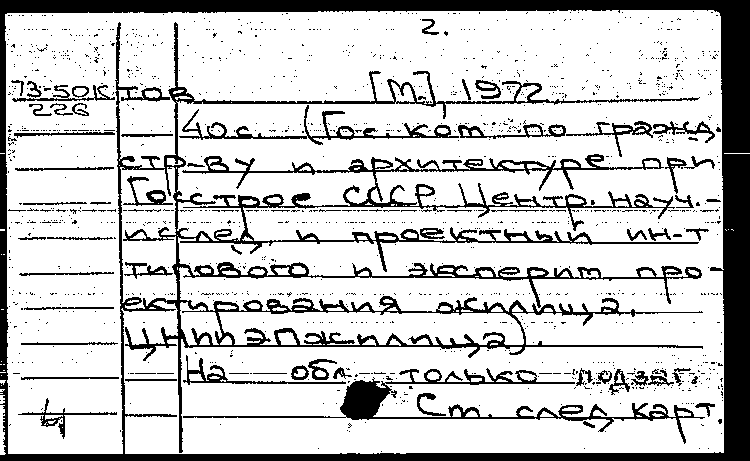 2.
73-50К тов [М.], 1972
226
40 с. (Гос. ком по гражд.
стр-ву и архитектуре при
Госстрое СССР. Центр. науч.-
исслед. и проектный ин-т
типового и эксперим. про-
ектирования жилища.
ЦНИИЭПжилища).
На обл. только подзаг.
См. след. карт.